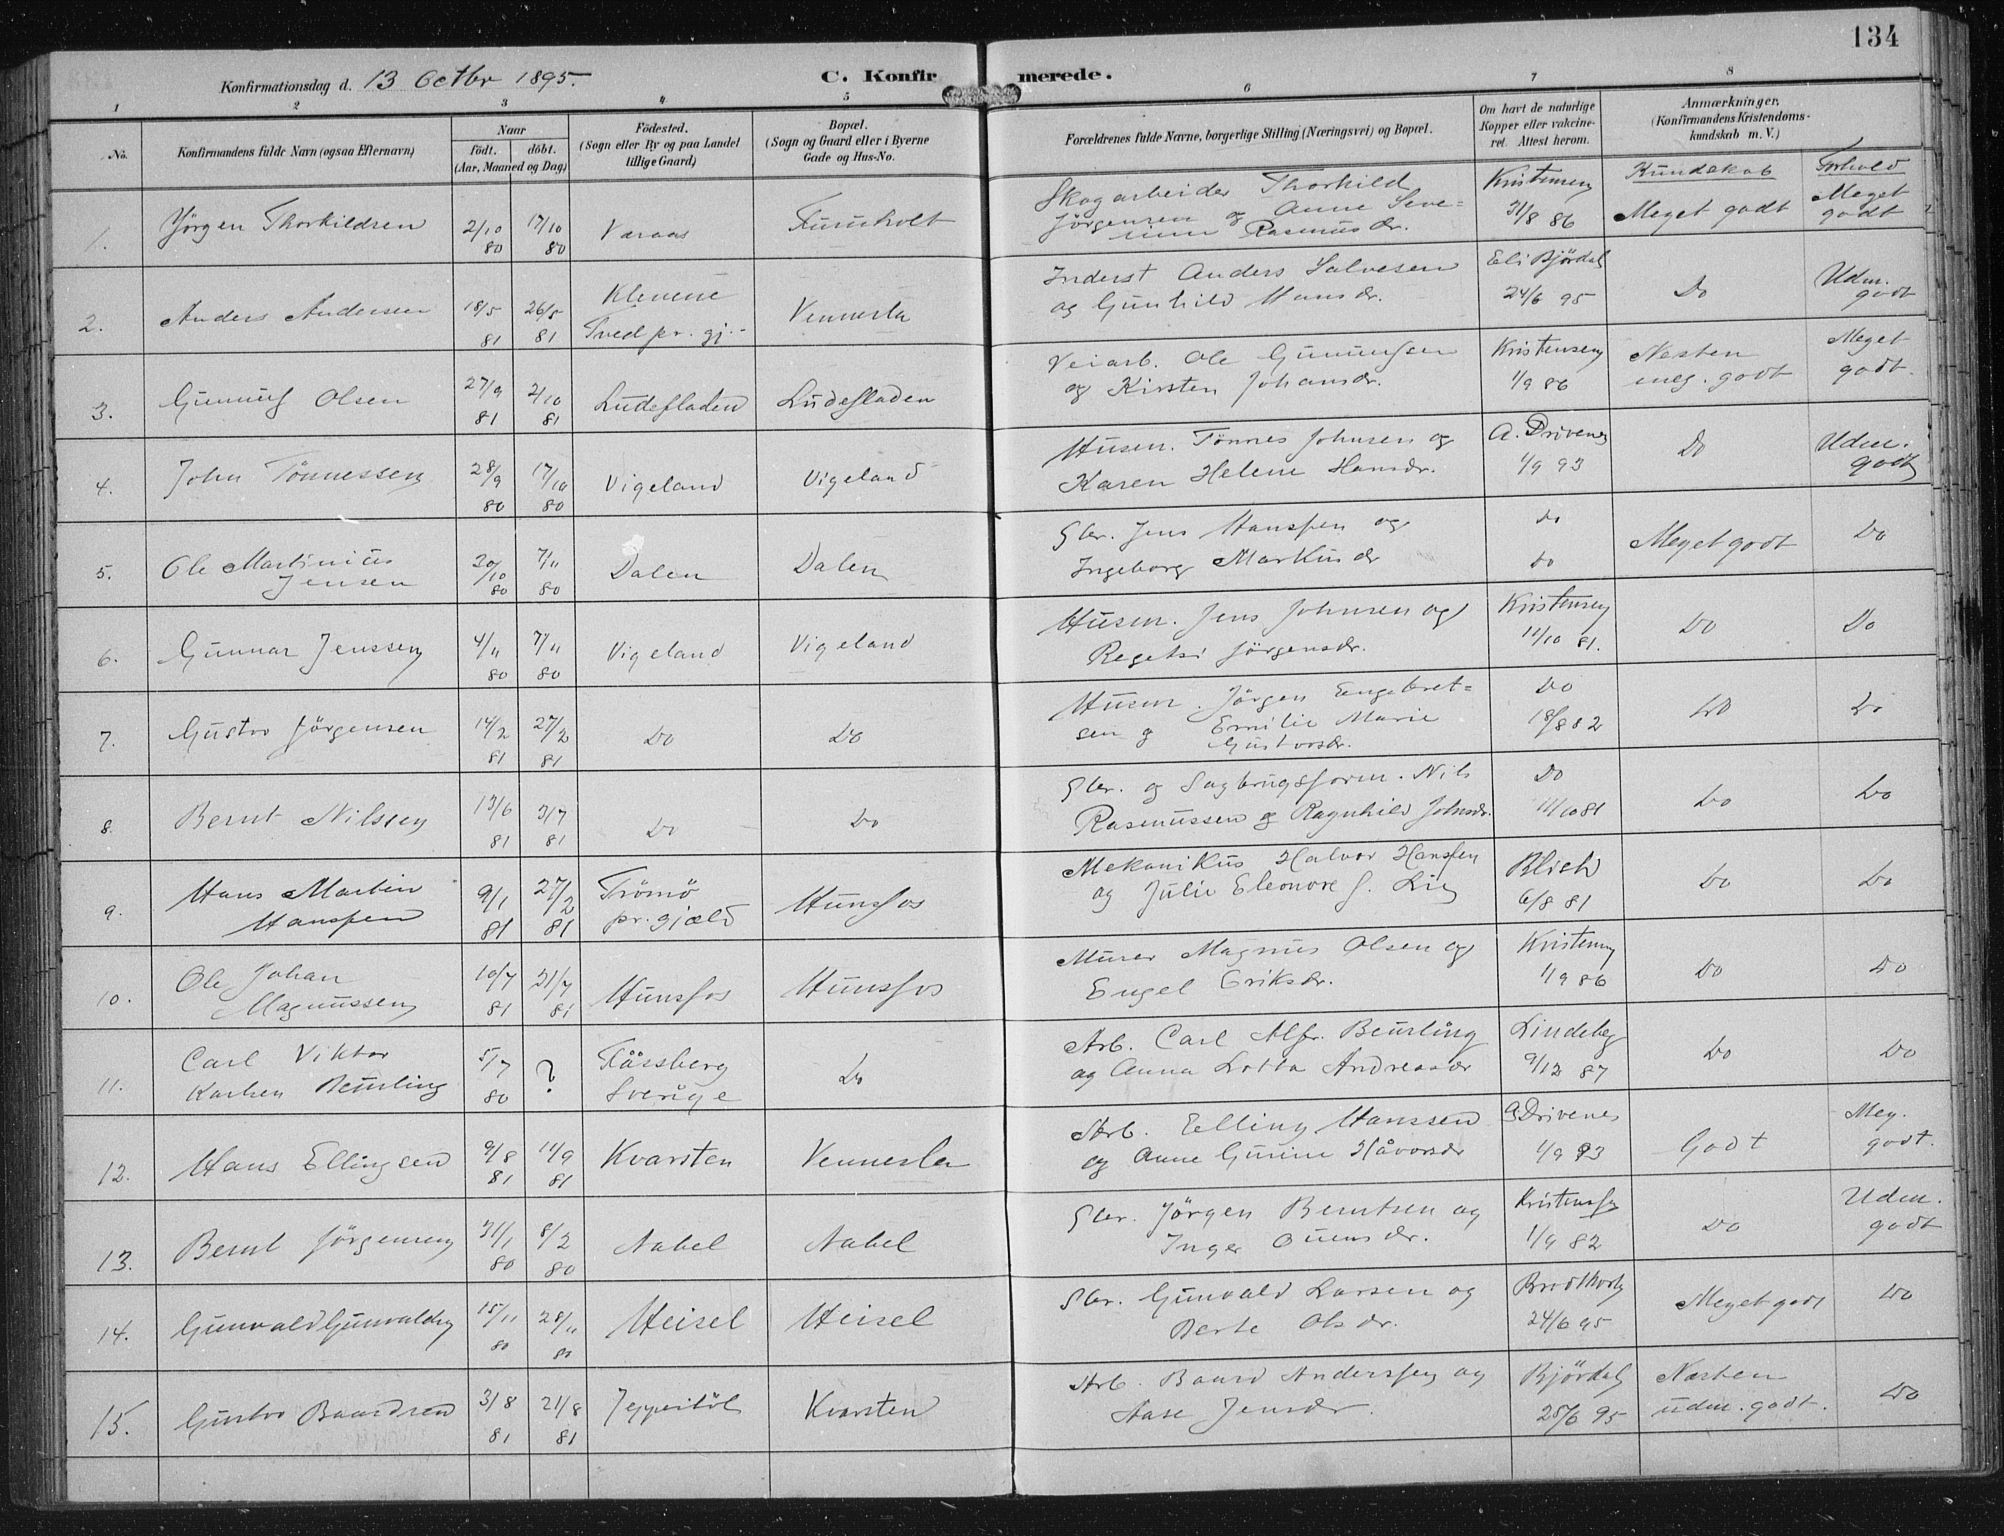 134
Konfirmationsdag d. 13 Octbr 1895.
C. Konfirmerede.
1 2 3 4 5 6 7 8
No.
Konfirmandens fulde Navn (ogsaa Efternavn)
Naar
födt. döbt.
(Aar, Maaned og Dag)
Födested.
(Sogn eller By og paa Landet
tillige Gaard)
Bopæl.
(Sogn og Gaard eller i Byerne
Gade og Hus-No.
Forældrenes fulde Navne, borgerlige Stilling (Næringsvei) og Bopæl.
Om havt de naturlige
Kopper eller vakcine-
ret. Attest herom.
Anmærkninger.
(Konfirmandens Kristendoms-
kundskab m. V.)
Kundskab Forhold
1. Jörgen Thorkildsen 2/10 80 17/10 80 Varaas
Skogarbeider Thorkild
Jörgensen og Anne Seve=
rine Rasmusdr.
Kristensen 31/8 86 Meget godt Meget godt
2. Anders Andersen 18/5 81 26/5 81 Klevene
Tved pr. gj. Vennesla
Inderst Anders Salvesen
og Gunhild Hansdr.
Eli Björdal 24/6 95 Do Udm. godt
3. Gunnuf Olsen 27/9 81 2/10 81 Ludefladen Ludefladen
Veiarb. Ole Gunnufsen
og Kirsten Johansdr.
Kristensen 1/9 86 Næsten meg. godt Meget godt.
4. John Tönnessen 28/9 80 17/10 80 Vigeland Vigeland
Husm. Tönnes Johnsen og
Karen Helene Hansdr.
A. Drivenes 1/9 93 Do Udm. godt
5. Ole Martinius
Jensen 30/10 80 7/11 80 Dalen Dalen
Gbr. Jens Hanssen og
Ingeborg Markusdr
do do Meget godt Do
6. Gunnar Jenssen 4/11 80 7/11 80 Vigeland Vigeland
Husm. Jens Johnsen og
Jörgensdr.
Kristensen 11/10 81. Do Do
7. Gustav Jörgensen 14/2 81 27/2 81 Do Do
Husm. Jörgen Engebret=
sen og Emilie Marie
Gustavsdr.
Do 18/8 82 Do Do
8. Bernt Nilssen 13/6 81 3/7 81 Do Do
Gbr. og Sagbrugsform. Nils
Rasmussen og Ragnhild Johnsdr.
Do 11/10 81 Do Do
9. Hans Martin
Hanssen 9/1 81 27/2 81 Trömö
pr.gjæld Hunsfos
Mekanikus Halvor Hanssen
og Julie Eleonore J. Lie
6/8 81 Do Do
10. Ole Johan
Magnussen 10/7 81 31/7 81 Hunsfos Hunsfos
Murer Magnus Olsen og
Engel Eriksdr.
Kristensen 1/9 86 Do Do
11. Carl Viktor
Beurling 5/7 80 ? Fässberg
Sverige Do
Arb. Carl Alfr. Beurling
og Anna Lotta Andreasdr
Lindeberg 9/12 87 Do Do
12. Hans Ellingsen 9/8 81 11/9 81 Kvarsten Vennesla
Arb. Elling Hanssen
og Anne Gurine Håvorsdr
A Drivenes 1/9 93 Godt Meg. godt.
13. Bernt Jörgensen 31/1 80 8/2 80 Nabel Nabel
Gbr. Jörgen Berntsen og
Inger
Kristensen 1/9 82 Do Udm. godt
14. Gunvald Gunvaldsen 15/11 80 28/11 80 Heisel Heisel
Gbr. Gunvald Larsen og
Berte Olsdr.
Brodtkorb 24/6 95 Meget godt Do
15. Gustav Baardsen 3/8 81 21/8 81 Jeppestöl Kvarsten
Arb. Baard Anderssen og
Aase Jensdr.
Björdal 25/6 95 Næsten udm. godt. Do